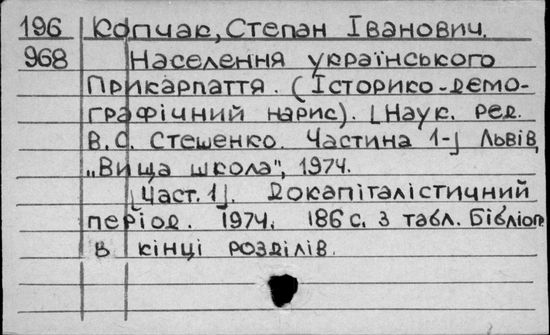 196 Копчак, Степан Іванович.
968 Населення українського
Прикарпаття. (Історико-демо-
графічний нарис). [Наук. ред.
В.С. Стешенко. Частина 1-] Львів,
„Вища школа", 1974.
[Част. 1]. Докапіталістичний
період. 1974. 186 с. з табл. Бібліогр.
в кінці розділів.